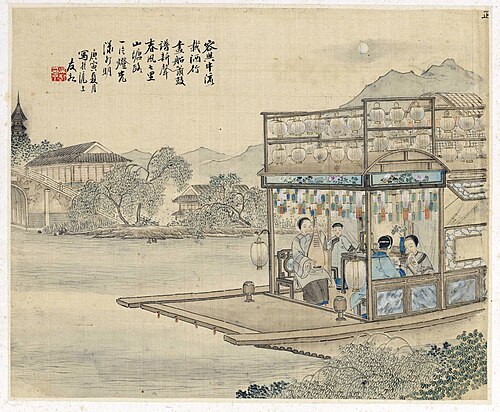 容與中流
載酒行
畫船簫鼓
譜新聲
春風七里
山塘路
一片燈光
漾月明
庚寅夏月
寫於滬上
友如